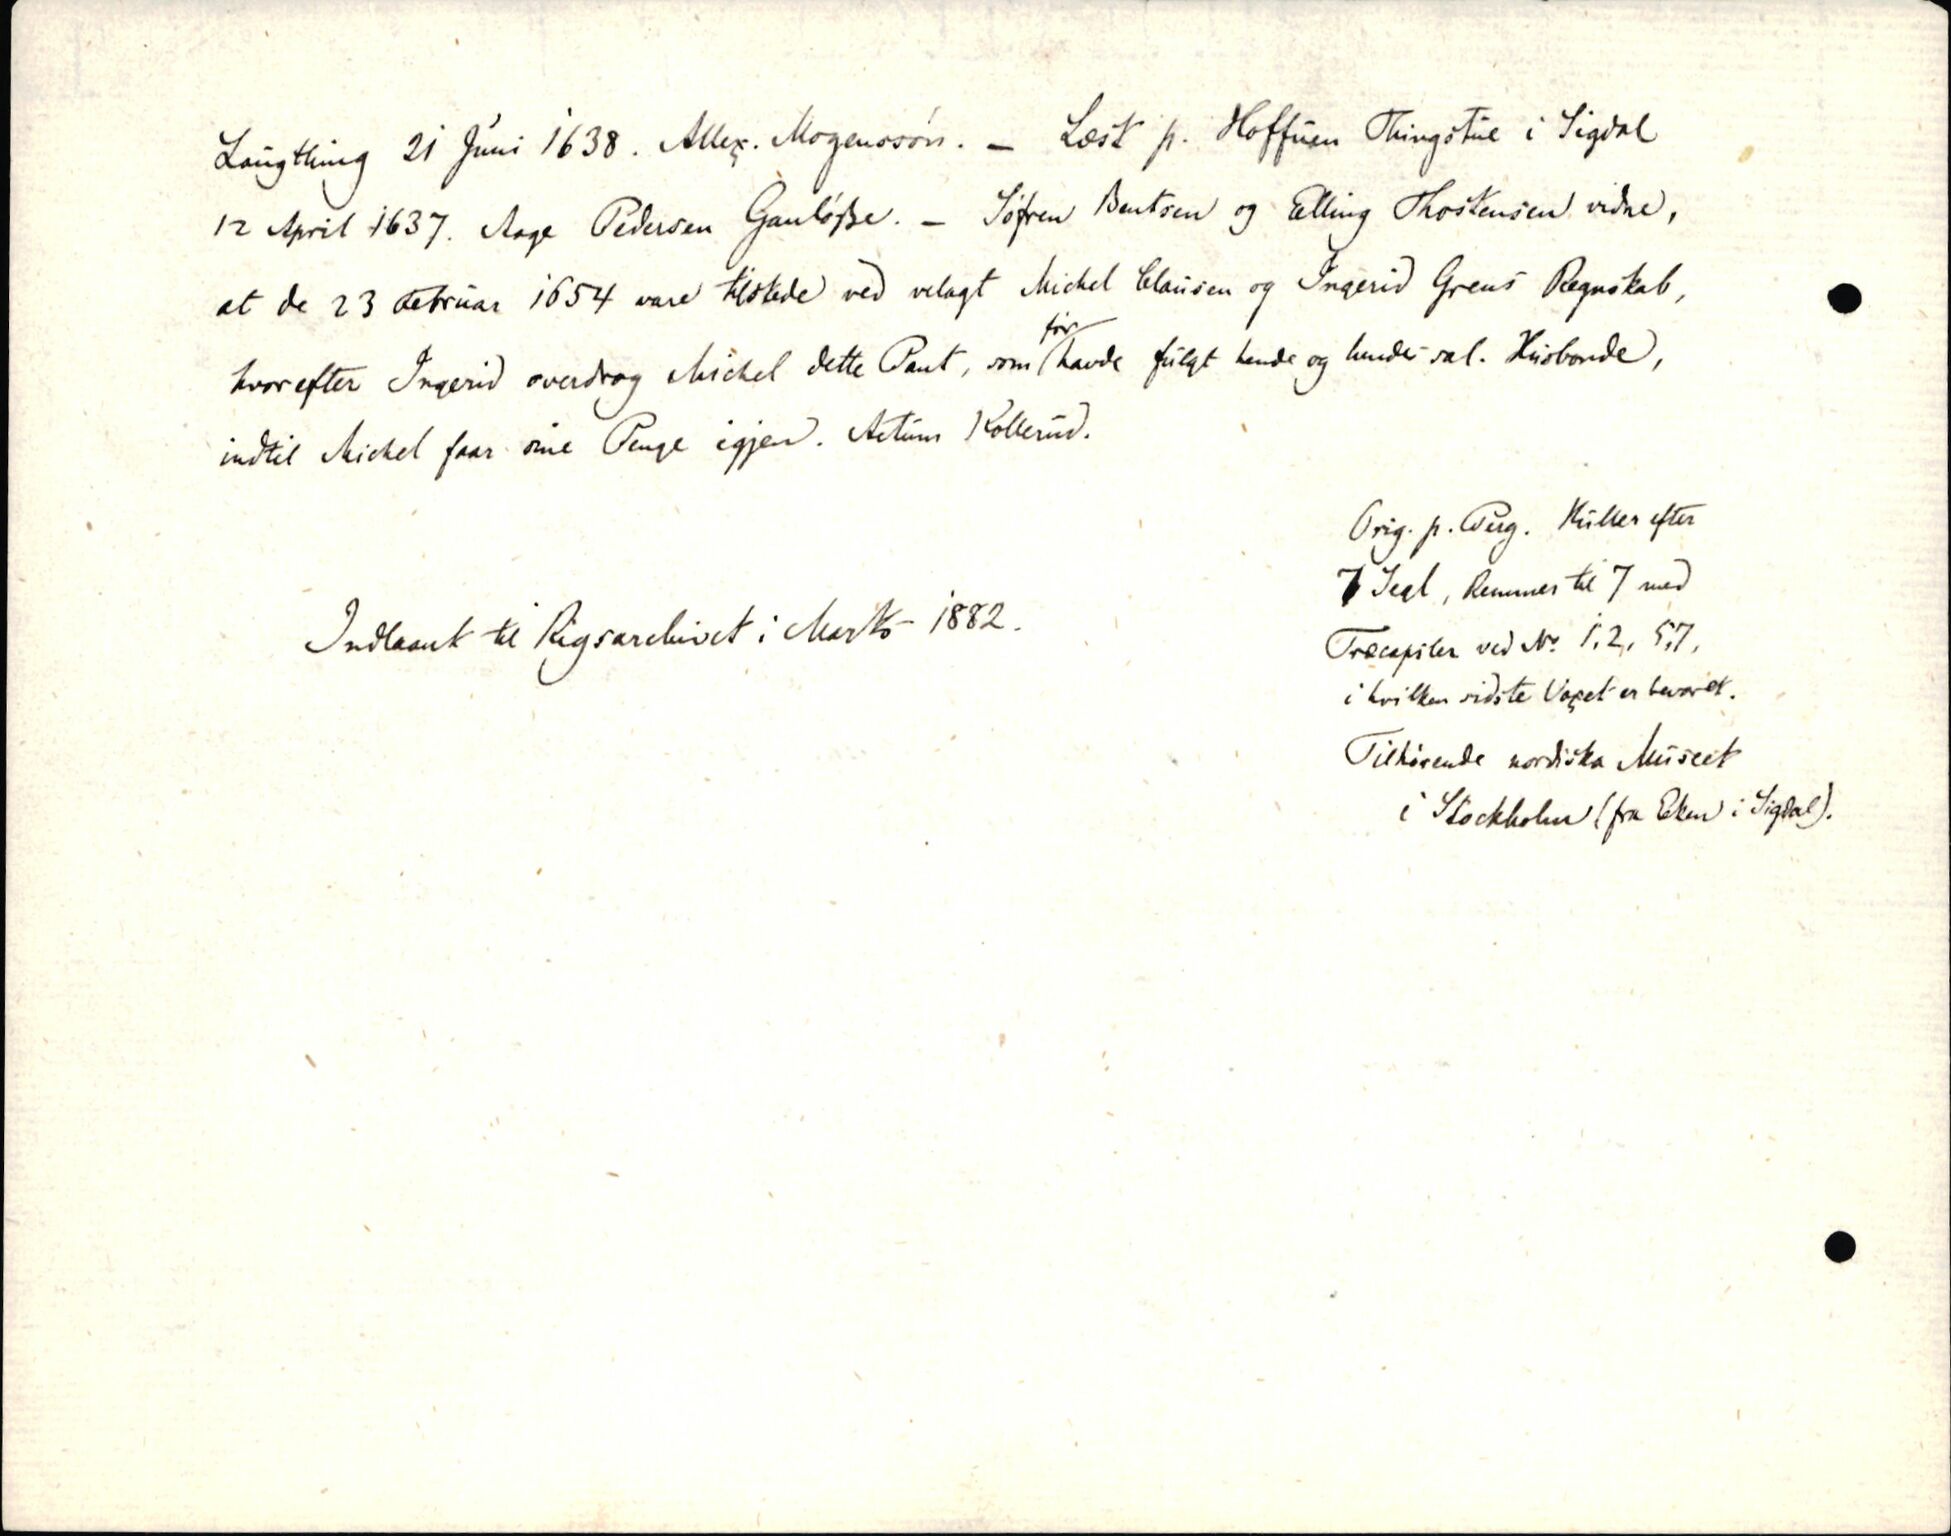 Laugthing 21 Juni 1638. Allex. Mogenssøn. — Læst p. Hoffuen Thingstue i Sigdal
12 April 1637. Aage Pedersen Gauløsse. — Søfren Bentsen og Elling Thostensen vidne,
at de 23 Februar 1654 vare tilstede ved velagt Michel Clausen og Ingerid Grens Regnskab,
hvorefter Ingerid overdrog Michel dette Pant, som før havde fulgt hende og hendes sal. Husbonde,
indtil Michel faar sine Penge igjen. Actum Kollerud.
Orig. p. Perg. Huller efter
7 Segl, Remmer til 7 med
Trecapsler ved No. 1, 2, 5, 7,
i hvilken sidste Voxet er bevaret.
Tilhørende nordiska Museet
i Stockholm (fra Eken i Sigdal).
Indlaant til Rigsarchivet i Marts 1882.